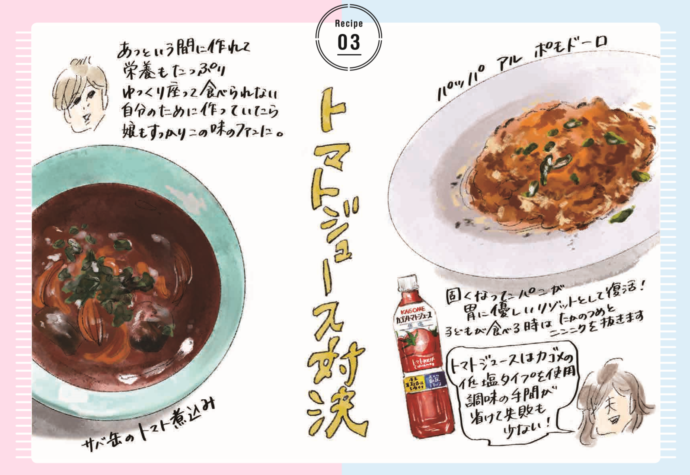 Recipe
03
あっという間に作れて
栄養もたっぷり
ゆっくり座って食べられない
自分のために作っていたら
娘もすっかりこの味のファンに。
トマトジュース対決
パッパ アル ポモドーロ
サバ缶のトマト煮込み
固くなったパンが
胃に優しいリゾットとして復活!
子どもが食べる時はたかのつめと
ニンニクを抜きます
KAGOME
カゴメトマトジュース
トマトジュースはカゴメの
低塩タイプを使用
調味の手間が
省けて失敗も
少ない!